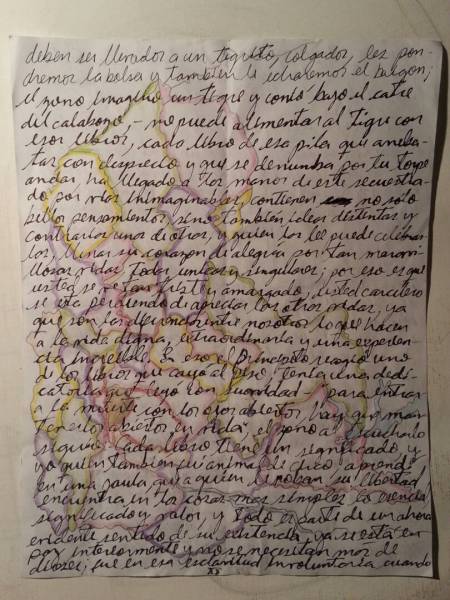 deben ser llevados a un tigrito, colgados, les pon-
dremos la bolsa y también le echaremos el baygon;
el zorro imaginó un tigre y contó bajo el catre
del calabozo, - no puede alimentar al tigre con
esos libros, cada libro de esa pila que
con desprecio y que se derrumba por tu torpe
andar, ha llegado a las manos de este secuestra-
do por vías inimaginables, contienen no solo
bellos pensamientos, sino también ideas distintas y
contrarias unas de otras, y quien los lee puede
los, llenar su corazón de alegría por tan maravi-
llosas vidas, todas únicas y singulares; por eso es que
usted se ve tan triste y amargado, usted carcelero
se está perdiendo de apreciar las otras vidas, ya
que son las diferencias entre nosotros lo que hacen
a la vida digna, extraordinaria y una experien-
cia increíble. En eso el Principito recogió uno
de los libros que cayó al piso, tenía una dedi-
catoria que leyó con "para entrar
a la muerte con los ojos abiertos, hay que man-
tenerlos abiertos en vida" el zorro al escucharlo
siguió: Cada libro tiene un significado, y
yo quien también fui animal de circo, aprendí
en una jaula, que a quien le roban su libertad
encuentra en las cosas más simples la esencia,
significado y valor, y todo es parte de un ahora
evidente sentido de su existencia, ya se está en
paz interiormente y no se necesitan más de
dioses; fue en esa esclavitud involuntaria cuando